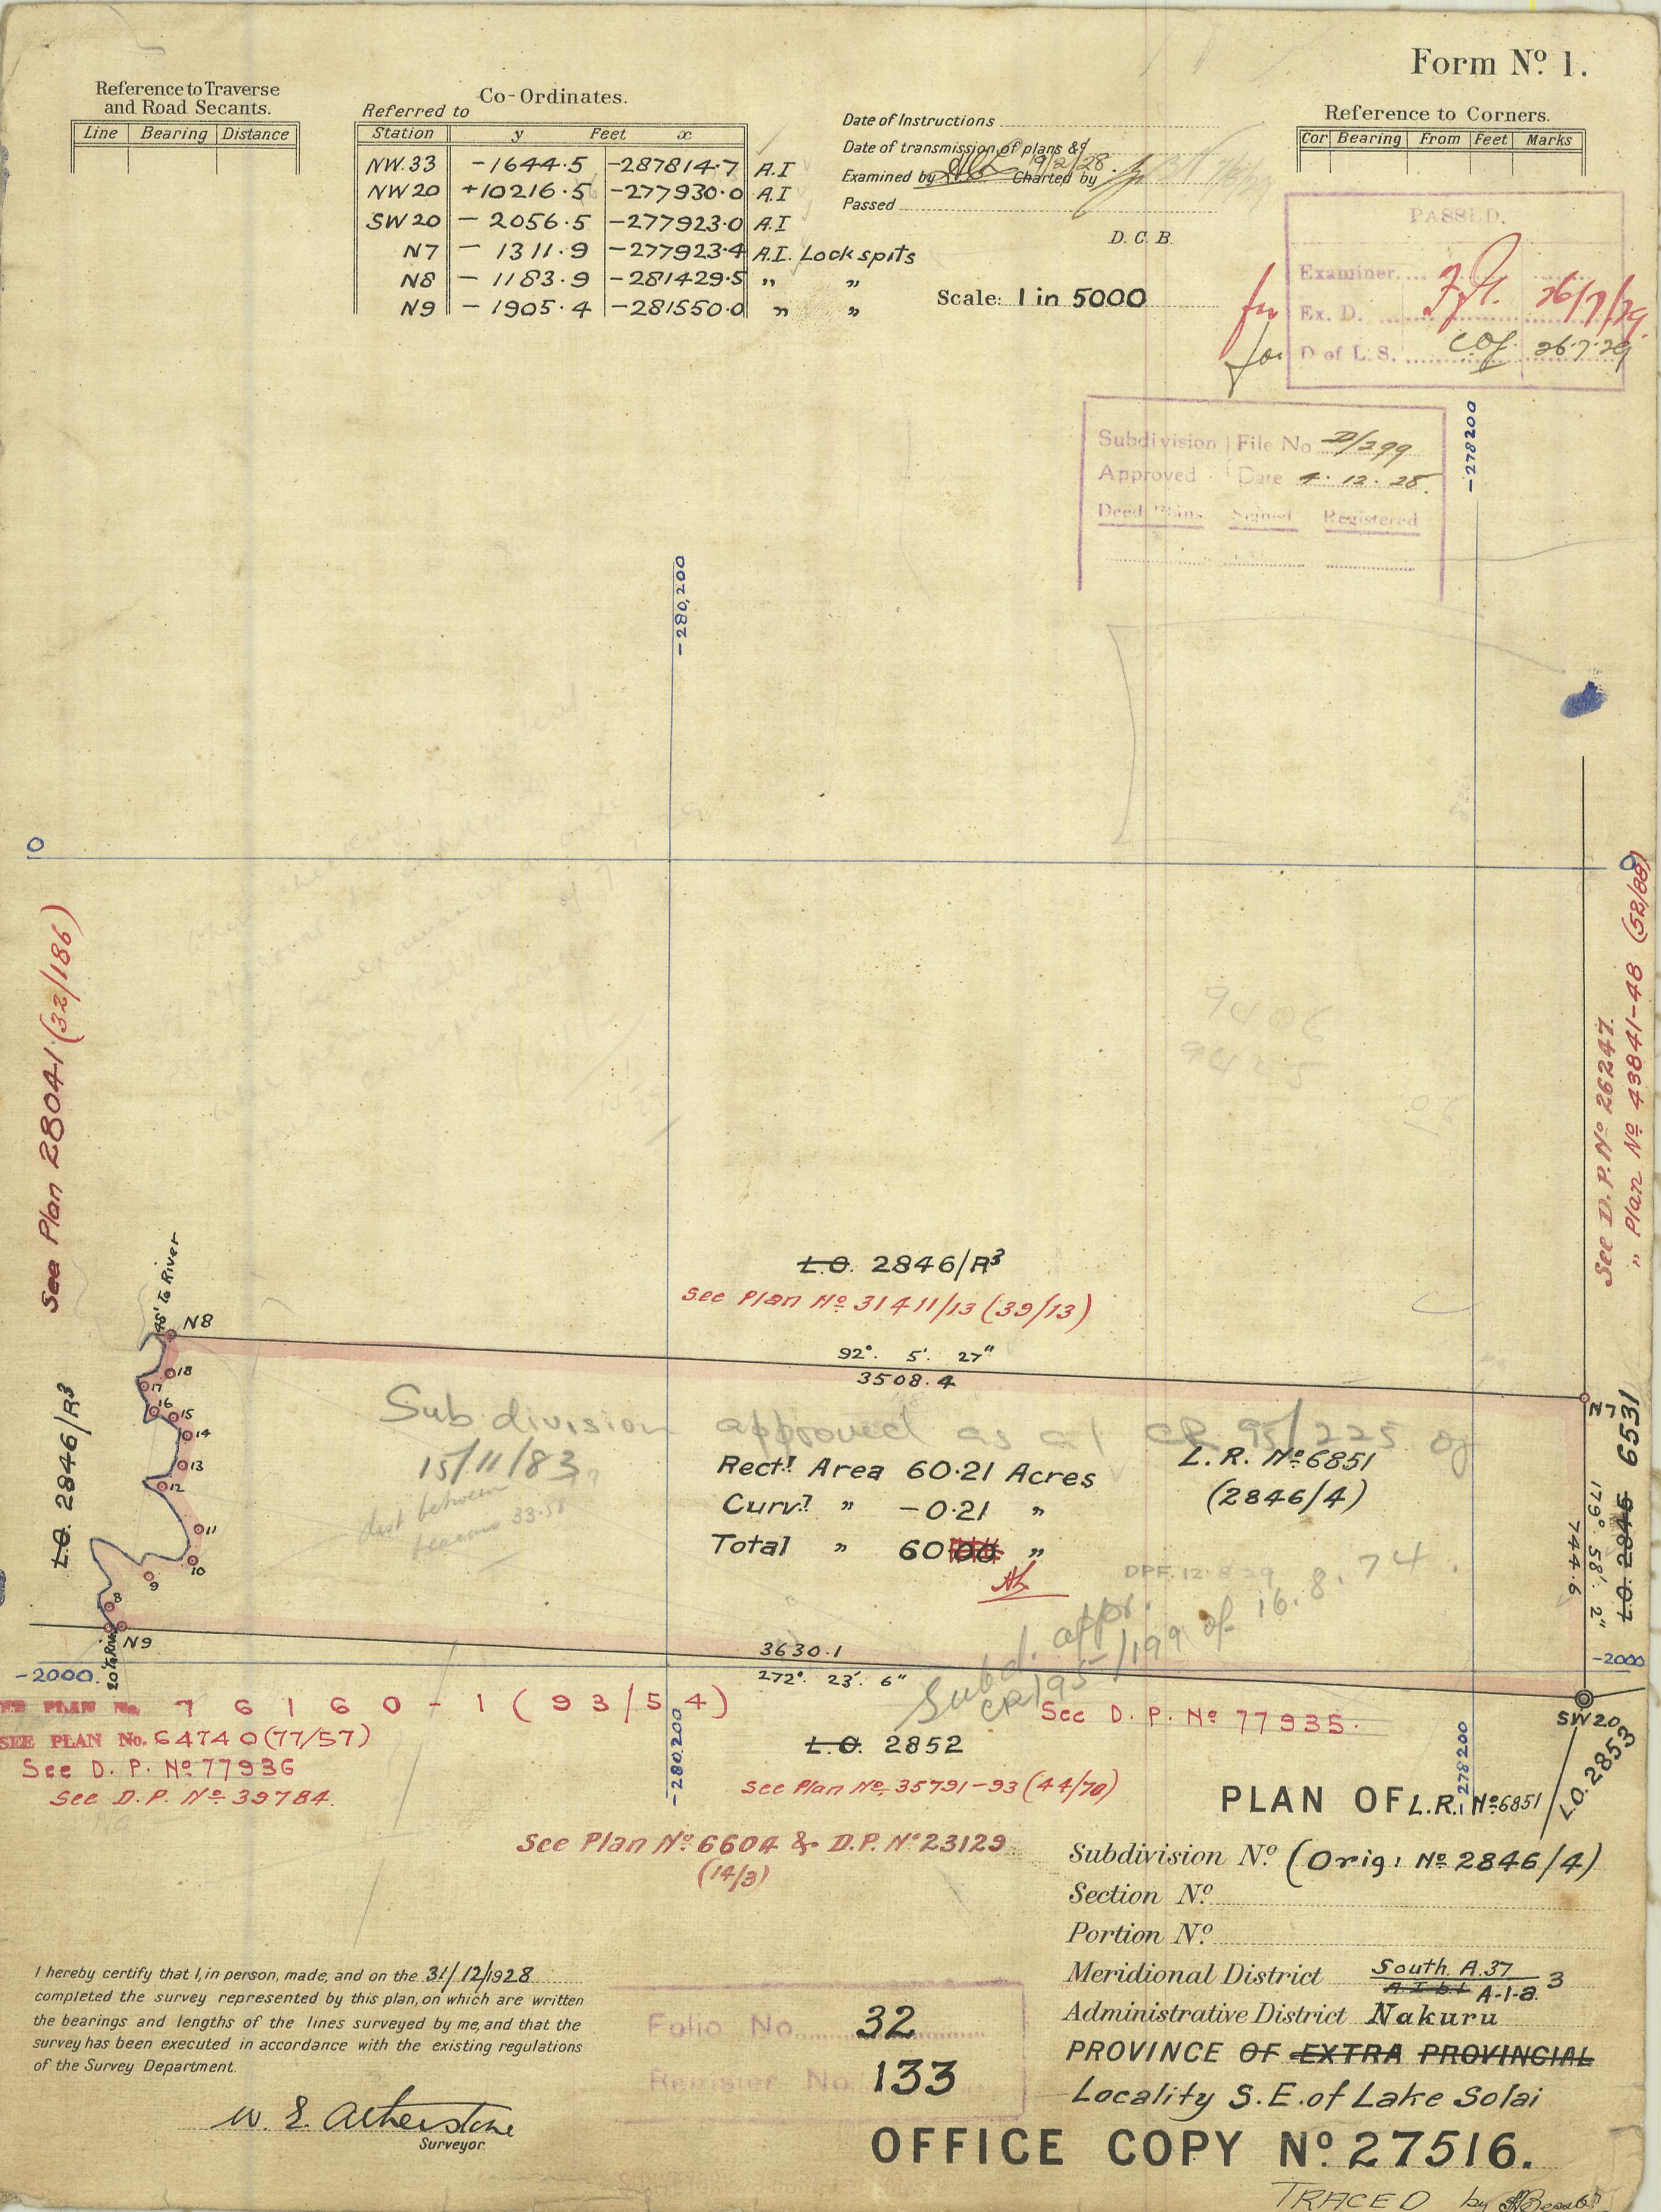 Form Nº 1.
Reference to Traverse
and Road Secants.
Line Bearing Distance
Co-Ordinates.
Referred to
Station y Feet x
NW.33 -1644.5 -287814.7 A.I
NW20 +10216.5 -277930.0 A.I
SW20 - 2056.5 -277923.0 A.I
N7 - 1311.9 -277923.4 A.I. Lock spits
N8 - 1183.9 -281429.5 " "
N9 - 1905.4 -281550.0 " "
Date of Instructions
Date of transmission of plans &c
19/2/28.
Examined by Charted by
Passed
D. C. B.
Scale: 1 in 5000
Reference to Corners.
Cor Bearing From Feet Marks
PASSED.
Examiner....
for Ex. D. 26/7/29.
for D of L. S. 26.7.29
Subdivision File No D/299
Approved Date 4.12.28.
Deed Plans Signed Registered
-278200
-280,200
0
0
See Plan 28041 (32/186)
See D.P. Nº 26247.
" Plan Nº 43841-48 (52/88)
9406
9425
06
L.O. 2846/R³
See Plan Nº 31411/13 (39/13)
45' to River
N8
92°. 5'. 27"
3508.4
18
17
16
15
14
13
12
11
10
9
8
N9
20' to River
L.O. 2846/R³
Subdivision approved as at CR 95/225 of
15/11/83
Rect! Area 60.21 Acres
Curv! " -0.21 "
Total " 60.00 "
L.R. Nº 6851
(2846/4)
DPF. 12.8.29
Subd. appr.
CR/95/199 of 16.8.74.
N7
744.6
179°. 58'. 2"
L.O. 2845 6531
3630.1
272°. 23'. 6"
-2000.
-2000
SEE PLAN No. 76160-1 (93/54)
SEE PLAN No. 64740 (77/57)
See D. P. Nº 77936
See D.P. Nº 39784.
-280,200
See D. P. Nº 77935.
278200
SW20
L.O. 2853
L.O. 2852
See Plan Nº 35791-93 (44/70)
See Plan Nº 6604 & D.P. Nº 23129
(14/3)
PLAN OF L.R. Nº 6851
Subdivision Nº (Orig: Nº 2846/4)
Section Nº
Portion Nº
Meridional District South A.37
A-1-a 3
Administrative District Nakuru
PROVINCE OF EXTRA PROVINCIAL
Locality S.E. of Lake Solai
I hereby certify that I, in person, made, and on the 31/12/1928
completed the survey represented by this plan, on which are written
the bearings and lengths of the lines surveyed by me, and that the
survey has been executed in accordance with the existing regulations
of the Survey Department.
W. E. Atherstone
Surveyor.
Folio No. 32
Register No. 133
OFFICE COPY Nº 27516.
TRACED by